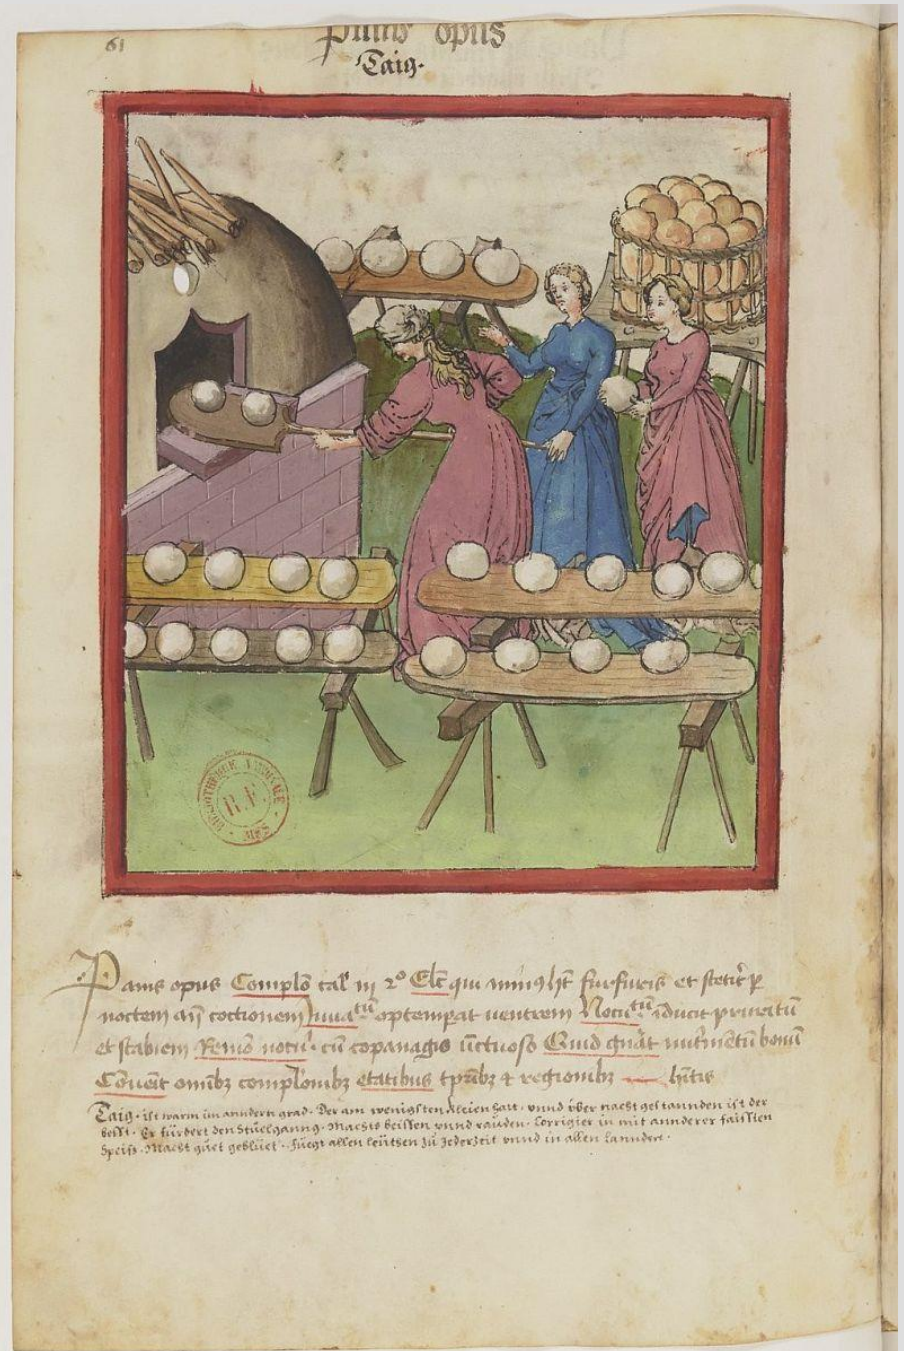 61
Panis opus
Taig.
Panis opus Complō cal in 2° Elc̄ qui minus hꝫ furfuris et stetit p
noctem añ coctionem Iuuatū optemperat uentrem Nocutū iducit pruritū
et scabiem Remō nocti cū companagio ūctuoso Quid gnāt nutrimētū bonū
Cōuēit omībꝫ complōnibꝫ etatibus tp̄ribꝫ & regionibꝫ hītis
Taig. ist warm im anndern grad. Der am wenigsten kleien hatt. vnnd vber nacht gestannden ist der
besst. Er fürdert den Stüelganng. Machts beissen vnnd rauden. Corrigier in mit annderer faissten
Speiss. Macht guet geblüet. Füegt allen leütsen zu Jederzeit vnnd in allen Lannden.
BIBLIOTHEQUE NATIONALE
R.F.
MSS